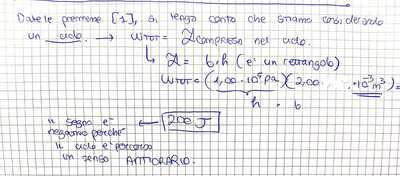 Date le premesse [1], si tengo conto che stiamo considerando
un ciclo. → WTOT = Acompresa nel ciclo.
↳ A = b·h (e' un rettangolo)
WTOT = (1,00·10⁵ Pa)(2,00 ·10⁻³ m³) =
h · b
200 J
Il segno e'
negativo perchè
il ciclo e' percorso
in senso ANTIORARIO.